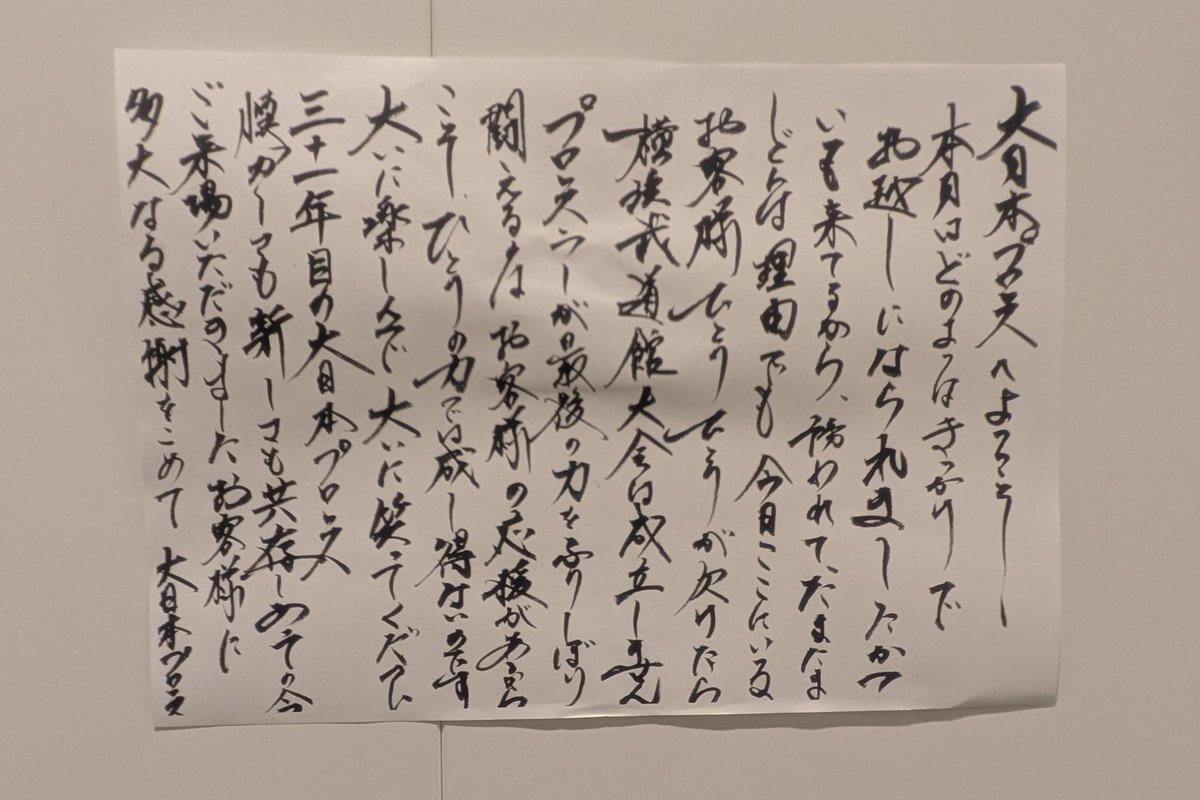 大日本プロレスへようこそ
本日はどのようなきっかけで
お越しになられましたかっ
いつも来てるから、誘われて、たまたま
しどんな理由でも 今日ここにいる
お客様 ひとり ひとりが欠けたら
横浜武道館大会は成立しません
プロレスラーが最後の力をふりしぼり
闘えるのは お客様の応援があるから
こそ、ひとりの力では成し得ないのです
大いに楽しんで 大いに笑ってください
三十一年目の大日本プロレス
懐かしさも新しさも共存しての今
ご来場いただきましたお客様に
多大なる感謝をこめて 大日本プロレス